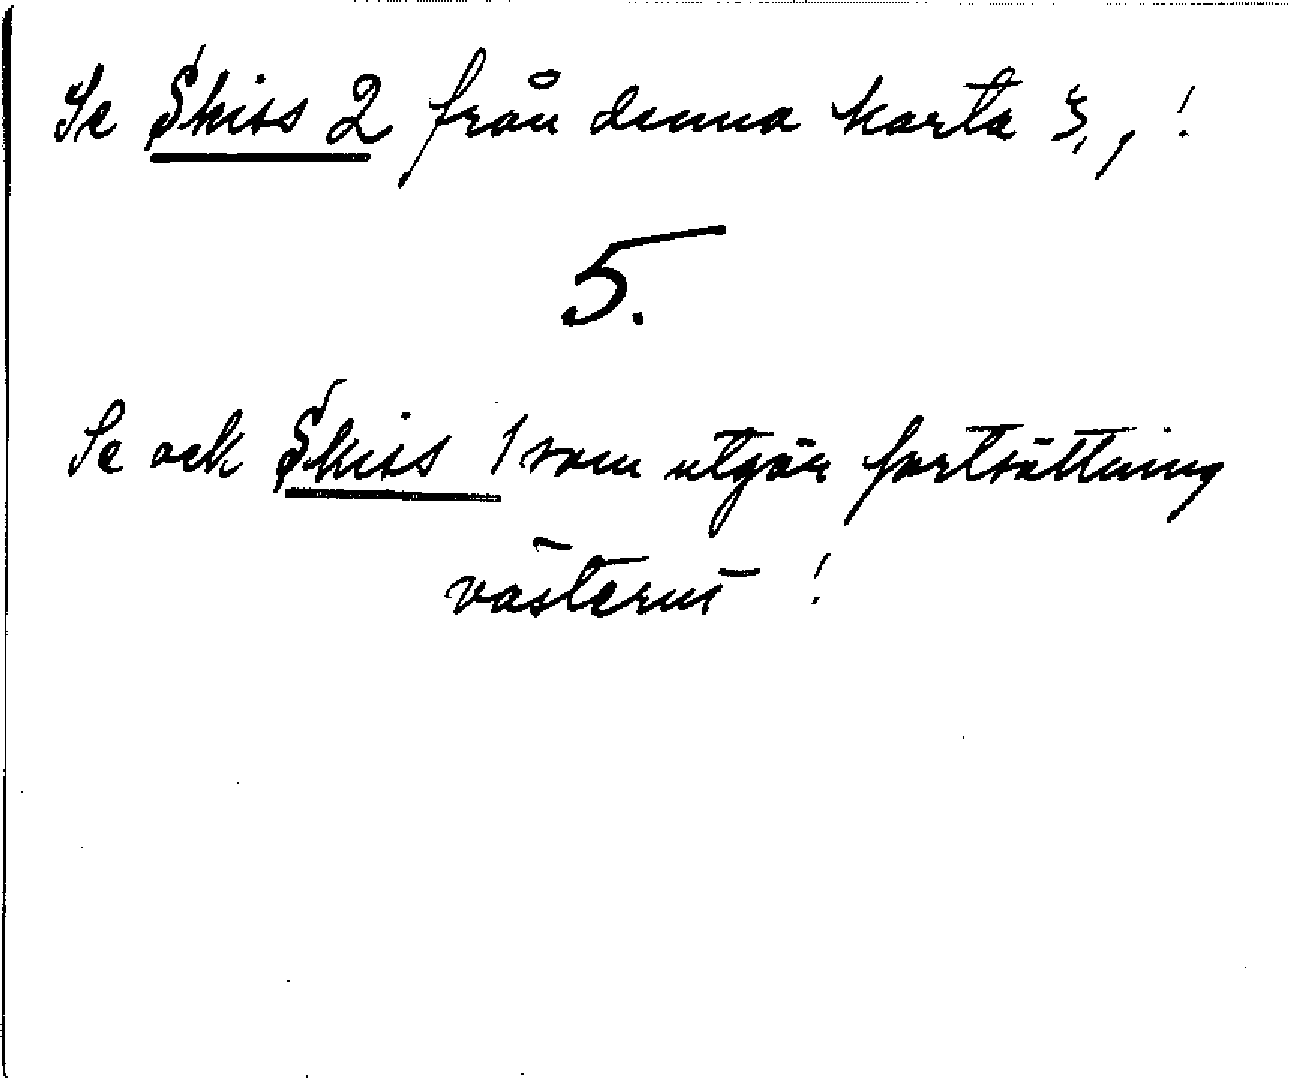 Se Skiss 2 från denna karta 3, !
5.
Se ock Skiss 1 som utgör fortsättning
västerut !